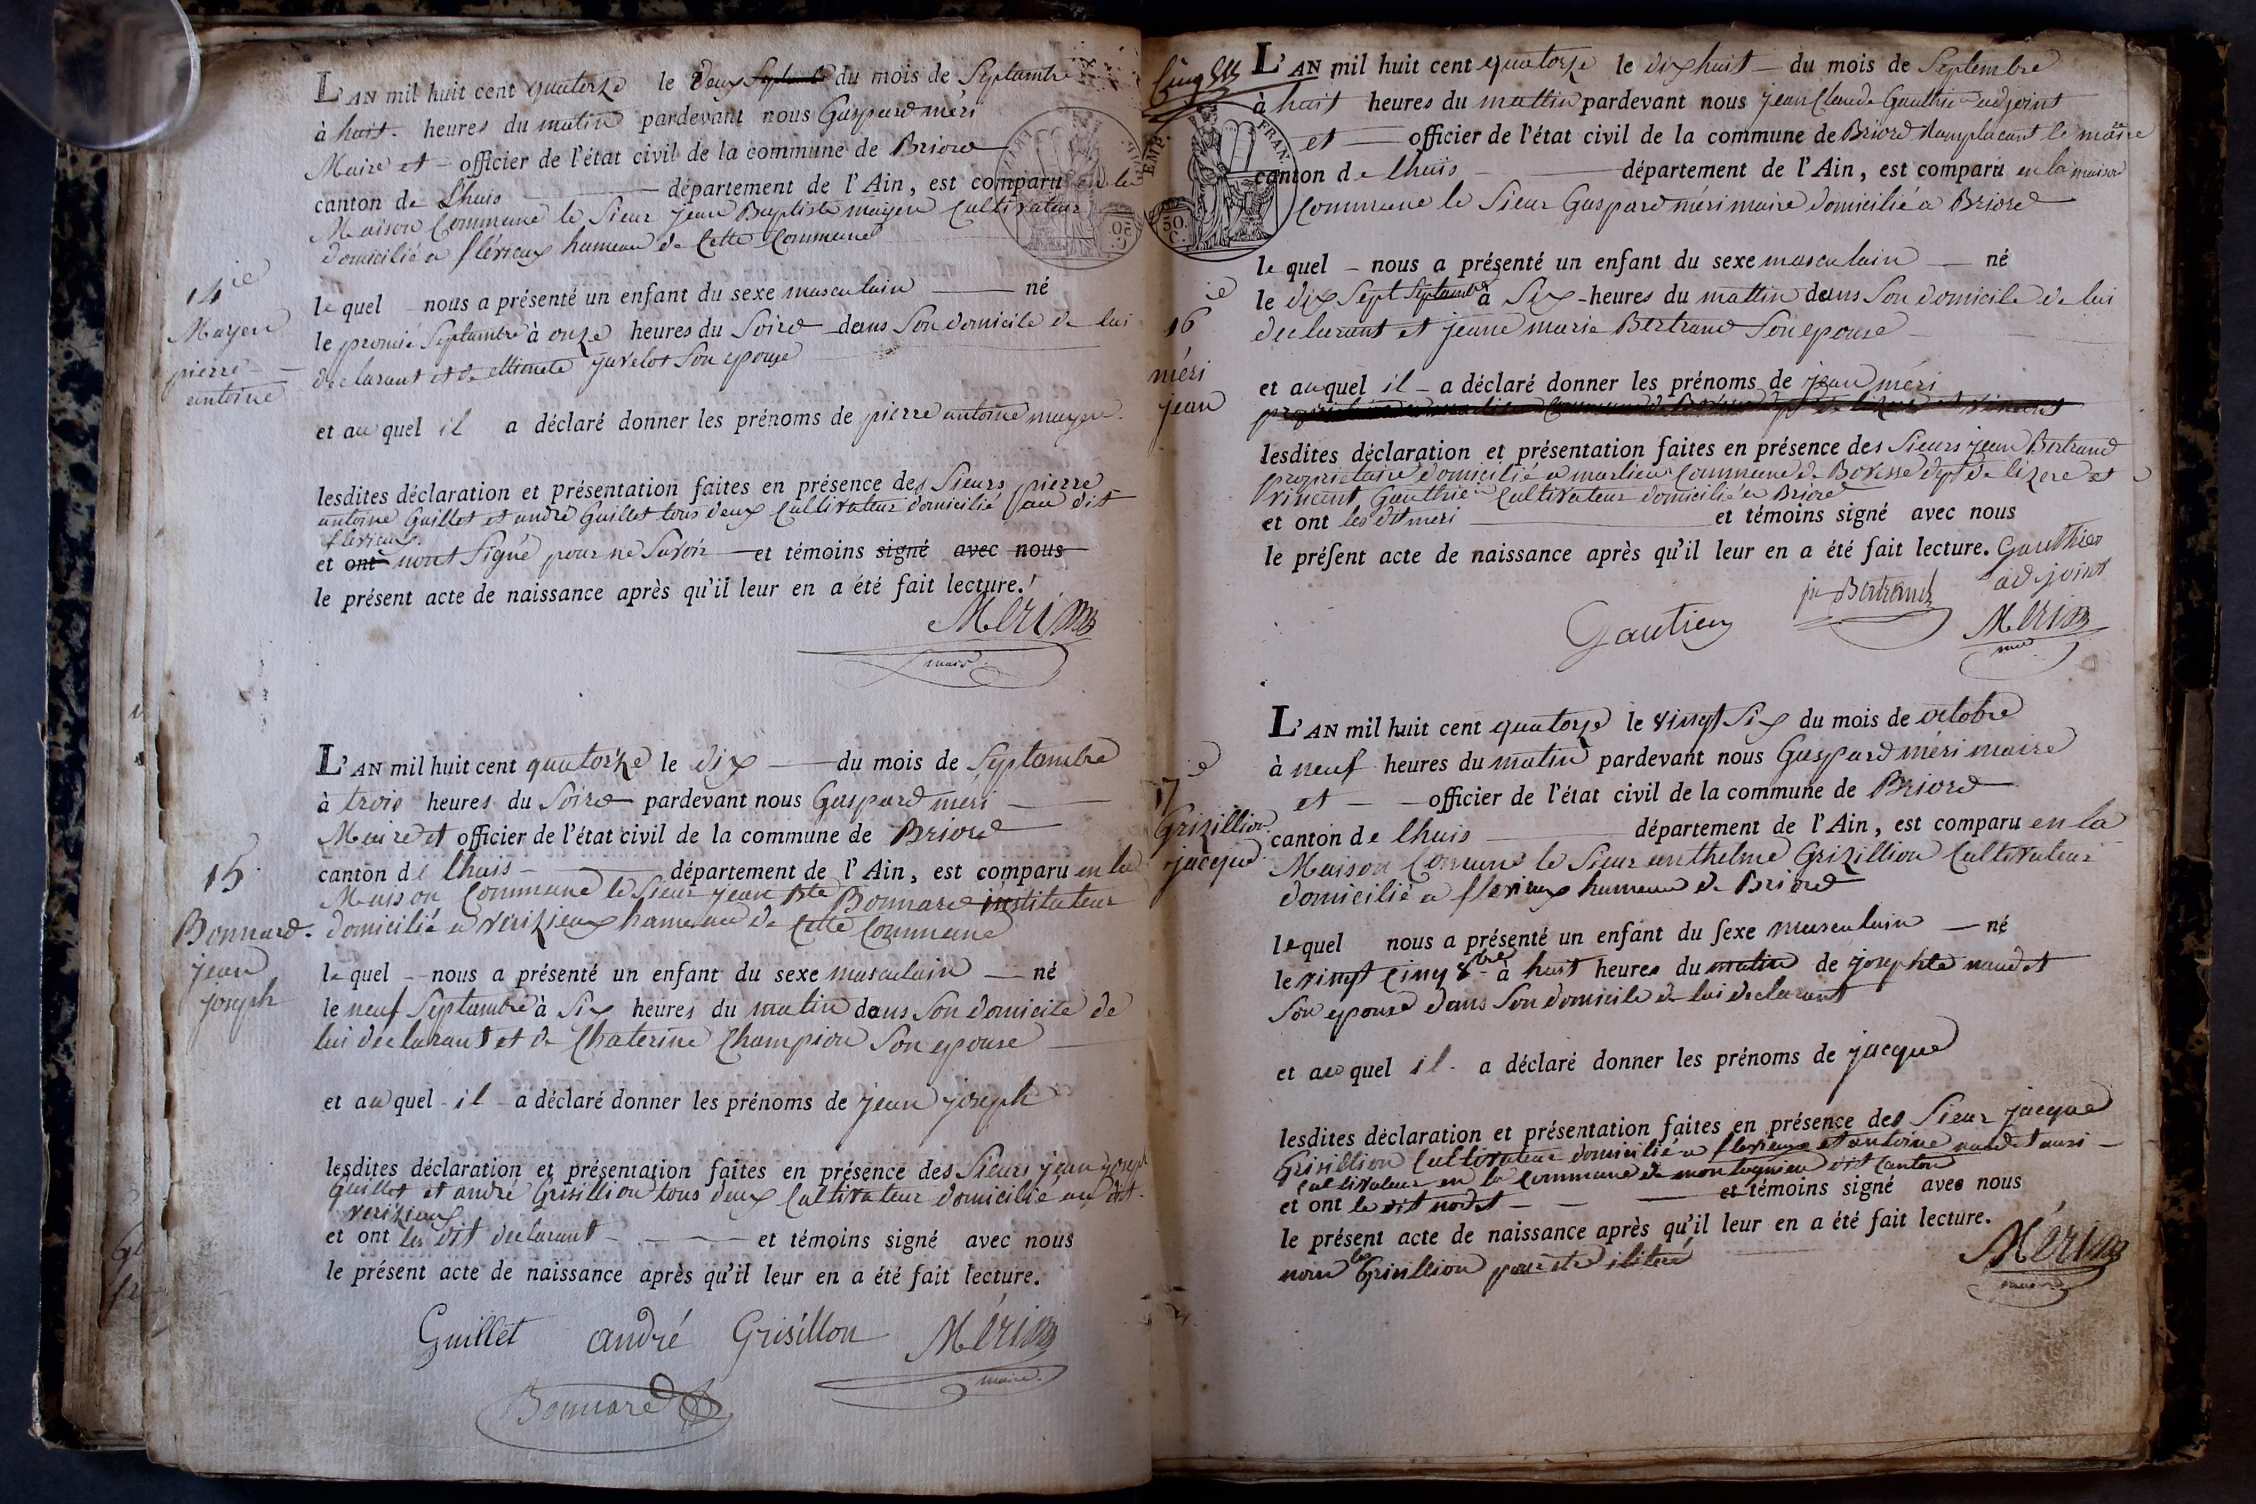 L'AN mil huit cent quatorze le deux Septembre du mois de Septambre
à huit heures du matin pardevant nous Gaspard méri
Maire et officier de l'état civil de la commune de Briord
canton de Lhuis département de l'Ain, est comparu en la
Maison Commune le Sieur jean Baptiste mayen Cultivateur
domicilié a flérieux hameau de Cette Commune
14ie
Mayen
pierre
antoine
le quel nous a présenté un enfant du sexe masculain né
le promié Septambre à onze heures du Soird dans Son domicile de lui
declarant et de ettienete javelot Son epouse
et au quel il a déclaré donner les prénoms de pierre antoine mayen
lesdites déclaration et présentation faites en présence des Sieurs pierre
antoine Guillet et andré Guillet tous deux Cultivateur domicilié au dit
flerieux
et ont nont Signé pour ne Savoir et témoins signé avec nous
le présent acte de naissance après qu'il leur en a été fait lecture.
Méri
maire
L'AN mil huit cent quatorze le dix du mois de Septambre
à trois heures du Soird pardevant nous Gaspard méri
Maire et officier de l'état civil de la commune de Briord
canton de lhuis département de l'Ain, est comparu en la
Maison Commune le Sieur jean Bte Bonnard instituteur
domicilié a verizieux hameau de Cette Commune
15
Bonnard
jean
joseph
le quel nous a présenté un enfant du sexe masculain né
le neuf Septambre à Six heures du matin dans Son domicile de
lui declarant et de Chaterine Champion Son epouse
et au quel il a déclaré donner les prénoms de jean joseph
lesdites déclaration et présentation faites en présence des Sieurs jean joseph
Guillet et andré Grisillion tous deux Cultivateur domicilié au dit
verizieux
et ont les dit declarant et témoins signé avec nous
le présent acte de naissance après qu'il leur en a été fait lecture.
Guillet andré Grisillon Méri
maire
Bonnard
EMP. FRAN.
50 C.
L'AN mil huit cent quatorze le dix huit du mois de Septembre
à huit heures du mattin pardevant nous jean Claude Gauthier adjoint
et officier de l'état civil de la commune de Briord Ramplacent le maire
canton de lhuis département de l'Ain, est comparu en la maison
Commune le Sieur Gaspard méri maire domicilié a Briord
16ie
méri
jean
le quel nous a présenté un enfant du sexe masculain né
le dix Sept Septambre à Six heures du mattin dans Son domicile de lui
declarant et jeane marie Bertrand Son epouse
et au quel il a déclaré donner les prénoms de jean méri
lesdites déclaration et présentation faites en présence des Sieurs jean Bertrand
propriétaire domicilié a marlieu Commune de Bovesse dept de lizere et
vincent Gauthier Cultivateur domicilié a Briord
et ont les dit meri et témoins signé avec nous
le présent acte de naissance après qu'il leur en a été fait lecture. Gauthier
adjoint
Bertrand
Gautier
Méri
L'AN mil huit cent quatorze le vingt Six du mois de octobre
à neuf heures du matin pardevant nous Gaspard méri maire
et officier de l'état civil de la commune de Briord
canton de lhuis département de l'Ain, est comparu en la
Maison Comune le Sieur anthelme Grizillion Cultivateur
domicilié a flerieux hameau de Briord
17e
Grizillion
jacque
le quel nous a présenté un enfant du sexe masculain né
le vingt Cinq 8bre à huit heures du matin de josephte naudet
Son epouse dans Son domicile de lui declarant
et au quel il a déclaré donner les prénoms de jacque
lesdites déclaration et présentation faites en présence des Sieur jacque
Grisillion Cultivateur domicilié a flerieux et antoine naudet ausi
Cultivateur en la Commune de montagnieu dit Canton
et ont le dit nodet et témoins signé avec nous
le présent acte de naissance après qu'il leur en a été fait lecture.
non les Grisillion pour etre iliteré
Méri
maire